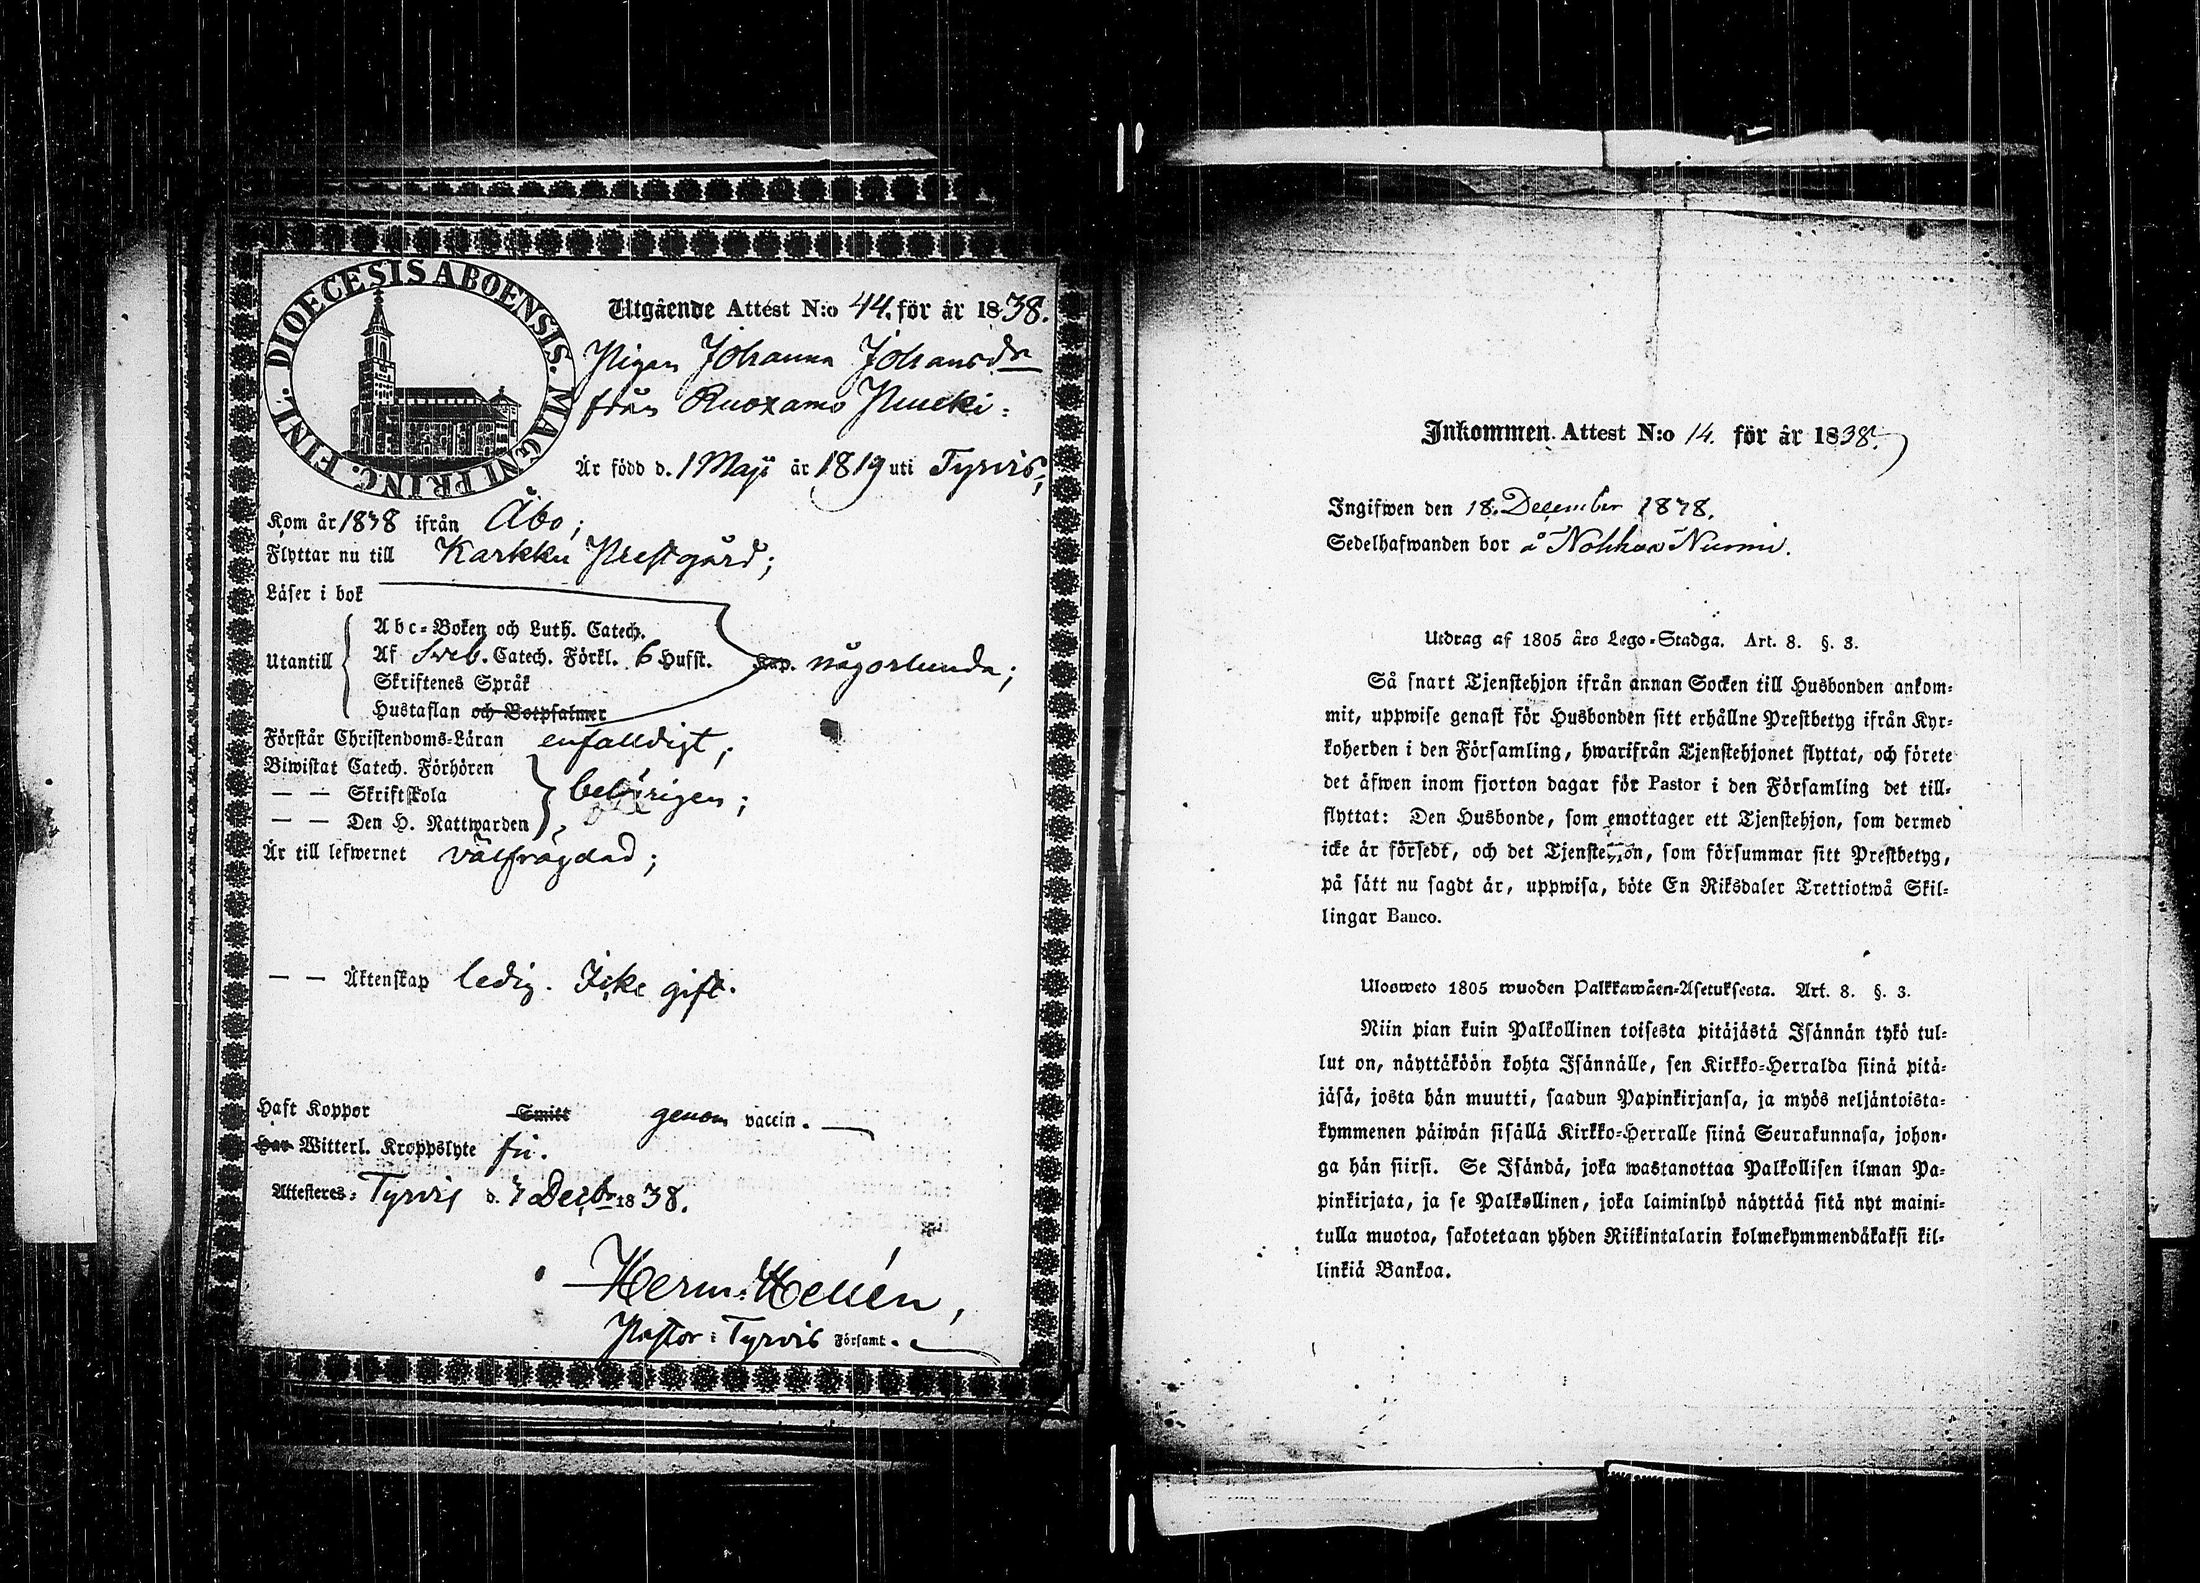 DIOECESIS ABOENSIS. MAGNI PRINC. FINL.
Utgående Attest N:o 44. för år 1838.
Pigan Johanna Johansdr
från Ruoxamo Pucki.
År född d. 1 Maji år 1819 uti Tyrvis;
Kom år 1838 ifrån Åbo;
Flyttar nu till Karkku Prestgård;
Läser i bok
Abc-Boken och Luth. Catech.
Utantill Af Sveb. Catech. Förkl. 6 Hufst. Kap. någorlunda;
Skriftenes Språk
Hustaflan och Botpsalmer
Förstår Christendoms-Läran enfalldigt;
Biwistat Catech. Förhören
— — Skriftskola behörigen;
— — Den H. Nattwarden
Är till lefwernet välfrägdad;
— — Äktenskap ledig. Icke gift.
Haft Koppor Smitt genom vaccin.
Har Witterl. Kroppslyte fri.
Attesteres: Tyrvis d. 7 Decbr 1838.
Herm: Hellén,
Pastor i Tyrvis Församl.
Inkommen Attest N:o 14. för år 1838.
Ingifwen den 18. December 1838.
Sedelhafwanden bor å Nohkua Nurmi.
Utdrag af 1805 års Lego-Stadga. Art. 8. §. 3.
Så snart Tjenstehjon ifrån annan Socken till Husbonden ankom-
mit, uppwise genast för Husbonden sitt erhållne Prestbetyg ifrån Kyr-
koherden i den Församling, hwarifrån Tjenstehjonet flyttat, och förete
det äfwen inom fjorton dagar för Pastor i den Församling det till-
flyttat: Den Husbonde, som emottager ett Tjenstehjon, som dermed
icke är försedt, och det Tjenstehjon, som försummar sitt Prestbetyg,
på sätt nu sagdt är, uppwisa, böte En Riksdaler Trettiotwå Skil-
lingar Banco.
Ulosweto 1805 wuoden Palkkawäen-Asetuksesta. Art. 8. §. 3.
Niin pian kuin Palkollinen toisesta pitäjästä Isännän tykö tul-
lut on, näyttäköön kohta Isännälle, sen Kirkko-Herralda siinä pitä-
jäsä, josta hän muutti, saadun Papinkirjansa, ja myös neljäntoista-
kymmenen päiwän sisällä Kirkko-Herralle siinä Seurakunnasa, johon-
ga hän siirsi. Se Isändä, joka wastanottaa Palkollisen ilman Pa-
pinkirjata, ja se Palkollinen, joka laiminlyö näyttää sitä nyt maini-
tulla muotoa, sakotetaan yhden Riikintalarin kolmekymmendäkaksi kil-
linkiä Bankoa.